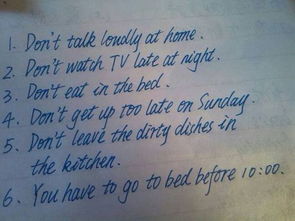 1. Don't talk loudly at home.
2. Don't watch TV late at night.
3. Don't eat in the bed.
4. Don't get up too late on Sunday.
5. Don't leave the dirty dishes in
the kitchen.
6. You have to go to bed before 10:00.